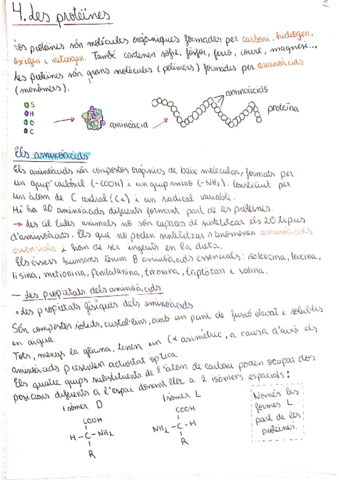 4. Les proteïnes
2
Les proteïnes són molècules orgàniques formades per carboni, hidrogen,
oxigen i nitrogen. També contenen sofre, fòsfor, ferro, coure, magnesi...
Les proteïnes són grans molècules (polímers) formades per aminoàcids
(monòmers).
aminoàcids
S
H
O
C
aminoàcid
proteïna
Els aminoàcids
Els aminoàcids són compostos orgànics de baix molecular, formats per
un grup carboxil (-COOH) i un grup amino (-NH2). Constituït per
un àtom de C central (Cα) i un radical variable.
Hi ha 20 aminoàcids diferents formant part de les proteïnes.
→ Les cèl·lules animals no són capaces de sintetitzar els 20 tipus
d'aminoàcids. Els que no poden sintetitzar s'anomenen aminoàcids
essencials i han de ser ingerits en la dieta.
Els éssers humans tenim 8 aminoàcids essencials: isoleucina, leucina,
lisina, metionina, fenilalanina, treonina, triptòfan i valina.
- Les propietats dels aminoàcids
• Les propietats físiques dels aminoàcids
Són compostos sòlids, cristal·lins, amb un punt de fusió elevat i solubles
en aigua.
Tots, menys la glicina, tenen un Cα asimètric, a causa d'això els
aminoàcids presenten activitat òptica.
Els quatre grups substituents de l'àtom de carboni poden ocupar dos
posicions diferents a l'espai donant lloc a 2 isòmers espacials:
Isòmer D
Isòmer L
COOH
H-C-NH2
R
COOH
NH2-C-H
R
Només les
formes L
part de les
proteïnes.